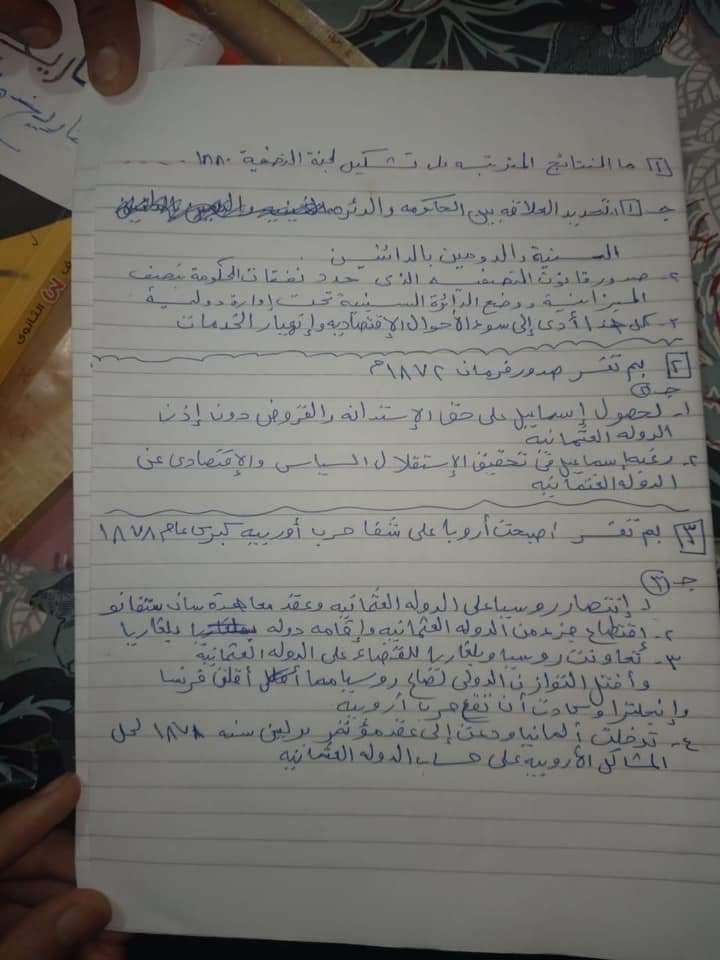 [١] ما النتائج المترتبه على تشكيل لجنة التصفية ١٨٨٠
جـ ١. تحديد العلاقه بين الحكومه والدائره
السنية والدومين بالدائنين
٢- صدور قانون التصفيه الذى حدد نفقات الحكومة بنصف
الميزانية ووضع الدائرة السنية تحت إدارة دولية
٣- كل هذا أدى إلى سوء الأحوال الإقتصاديه وإنهيار الخدمات
[٢] بم تفسر صدور فرمان ١٨٧٢م
جـ٢
١- لحصول إسماعيل على حق الإستدانه والقروض دون إذن
الدوله العثمانية
٢- رغبه إسماعيل فى تحقيق الإستقلال السياسى والإقتصادى عن
الدوله العثمانيه
[٣] بم تفسر اصبحت أروبا على شفا حرب أوربيه كبرى عام ١٨٧٨
جـ ٣
١. إنتصار روسيا على الدوله العثمانيه وعقد معاهدة سان ستفانو
٢. إقتطاع جزء من الدوله العثمانيه وإقامه دوله بلغاريا
٣- تعاونت روسيا وبلغاريا للقضاء على الدوله العثمانية
وأختل التوازن الدولى لصالح روسيا مما أقلق فرنسا
وإنجلترا وكادت أن تقع حرب أروبية
٤- تدخلت ألمانيا ودعت إلى عقد مؤتمر برلين سنه ١٨٧٨ لحل
المشاكل الأروبيه على حساب الدوله العثمانيه
الثانوى